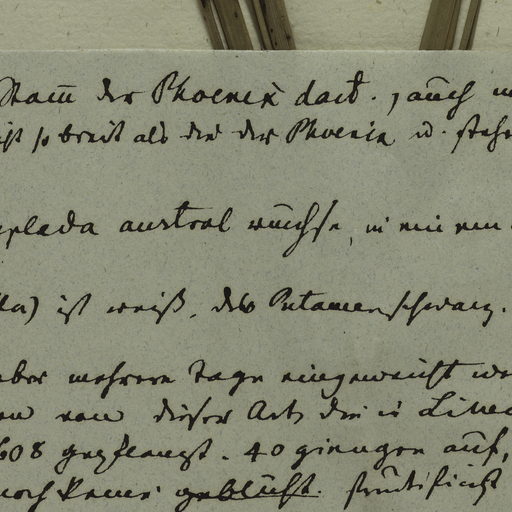 Stam̄ der Phoenix dact., auch
ist so breit als die der Phoenix u. steh
austral wüchse, in einem
ist weiß, das Putamen schwarz.
aber mehrere Tage eingeweicht
von dieser Art, die in
608 gepflanzt. 40 giengen auf,
noch keine geblüht. fructificirt